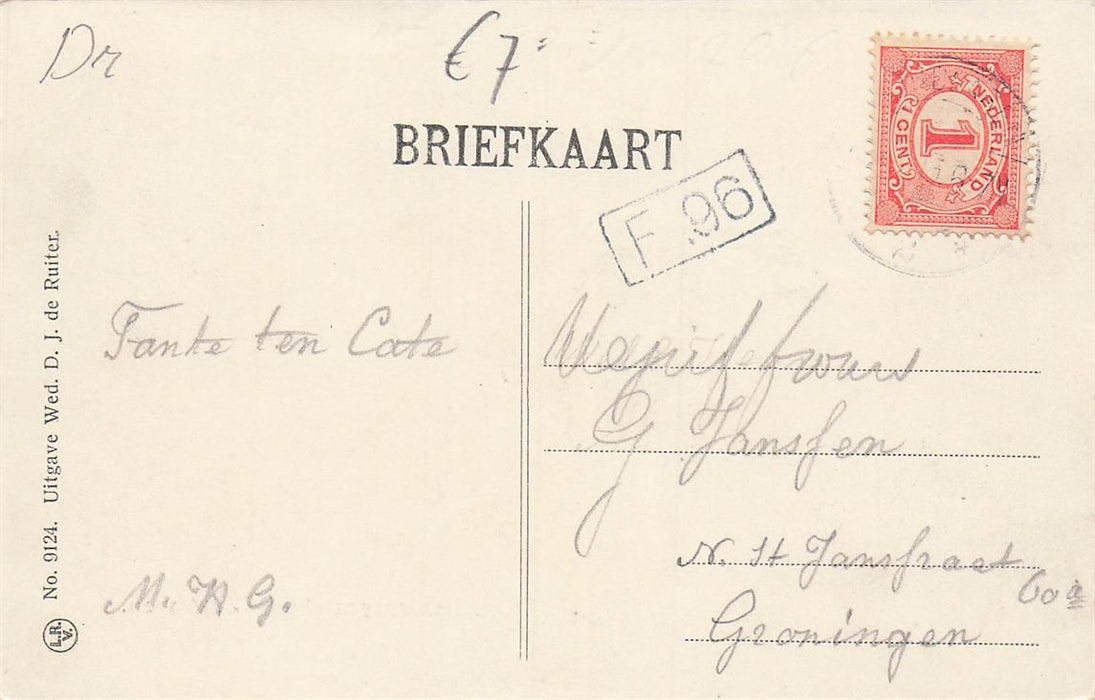 Dr
€7
BRIEFKAART
F.96
NEDERLAND
1 CENT
1
Tante ten Cate
G Janssen
N. St Jansstraat
60a
Groningen
M. H. G.
No. 9124. Uitgave Wed. D. J. de Ruiter.
L.R.
V.